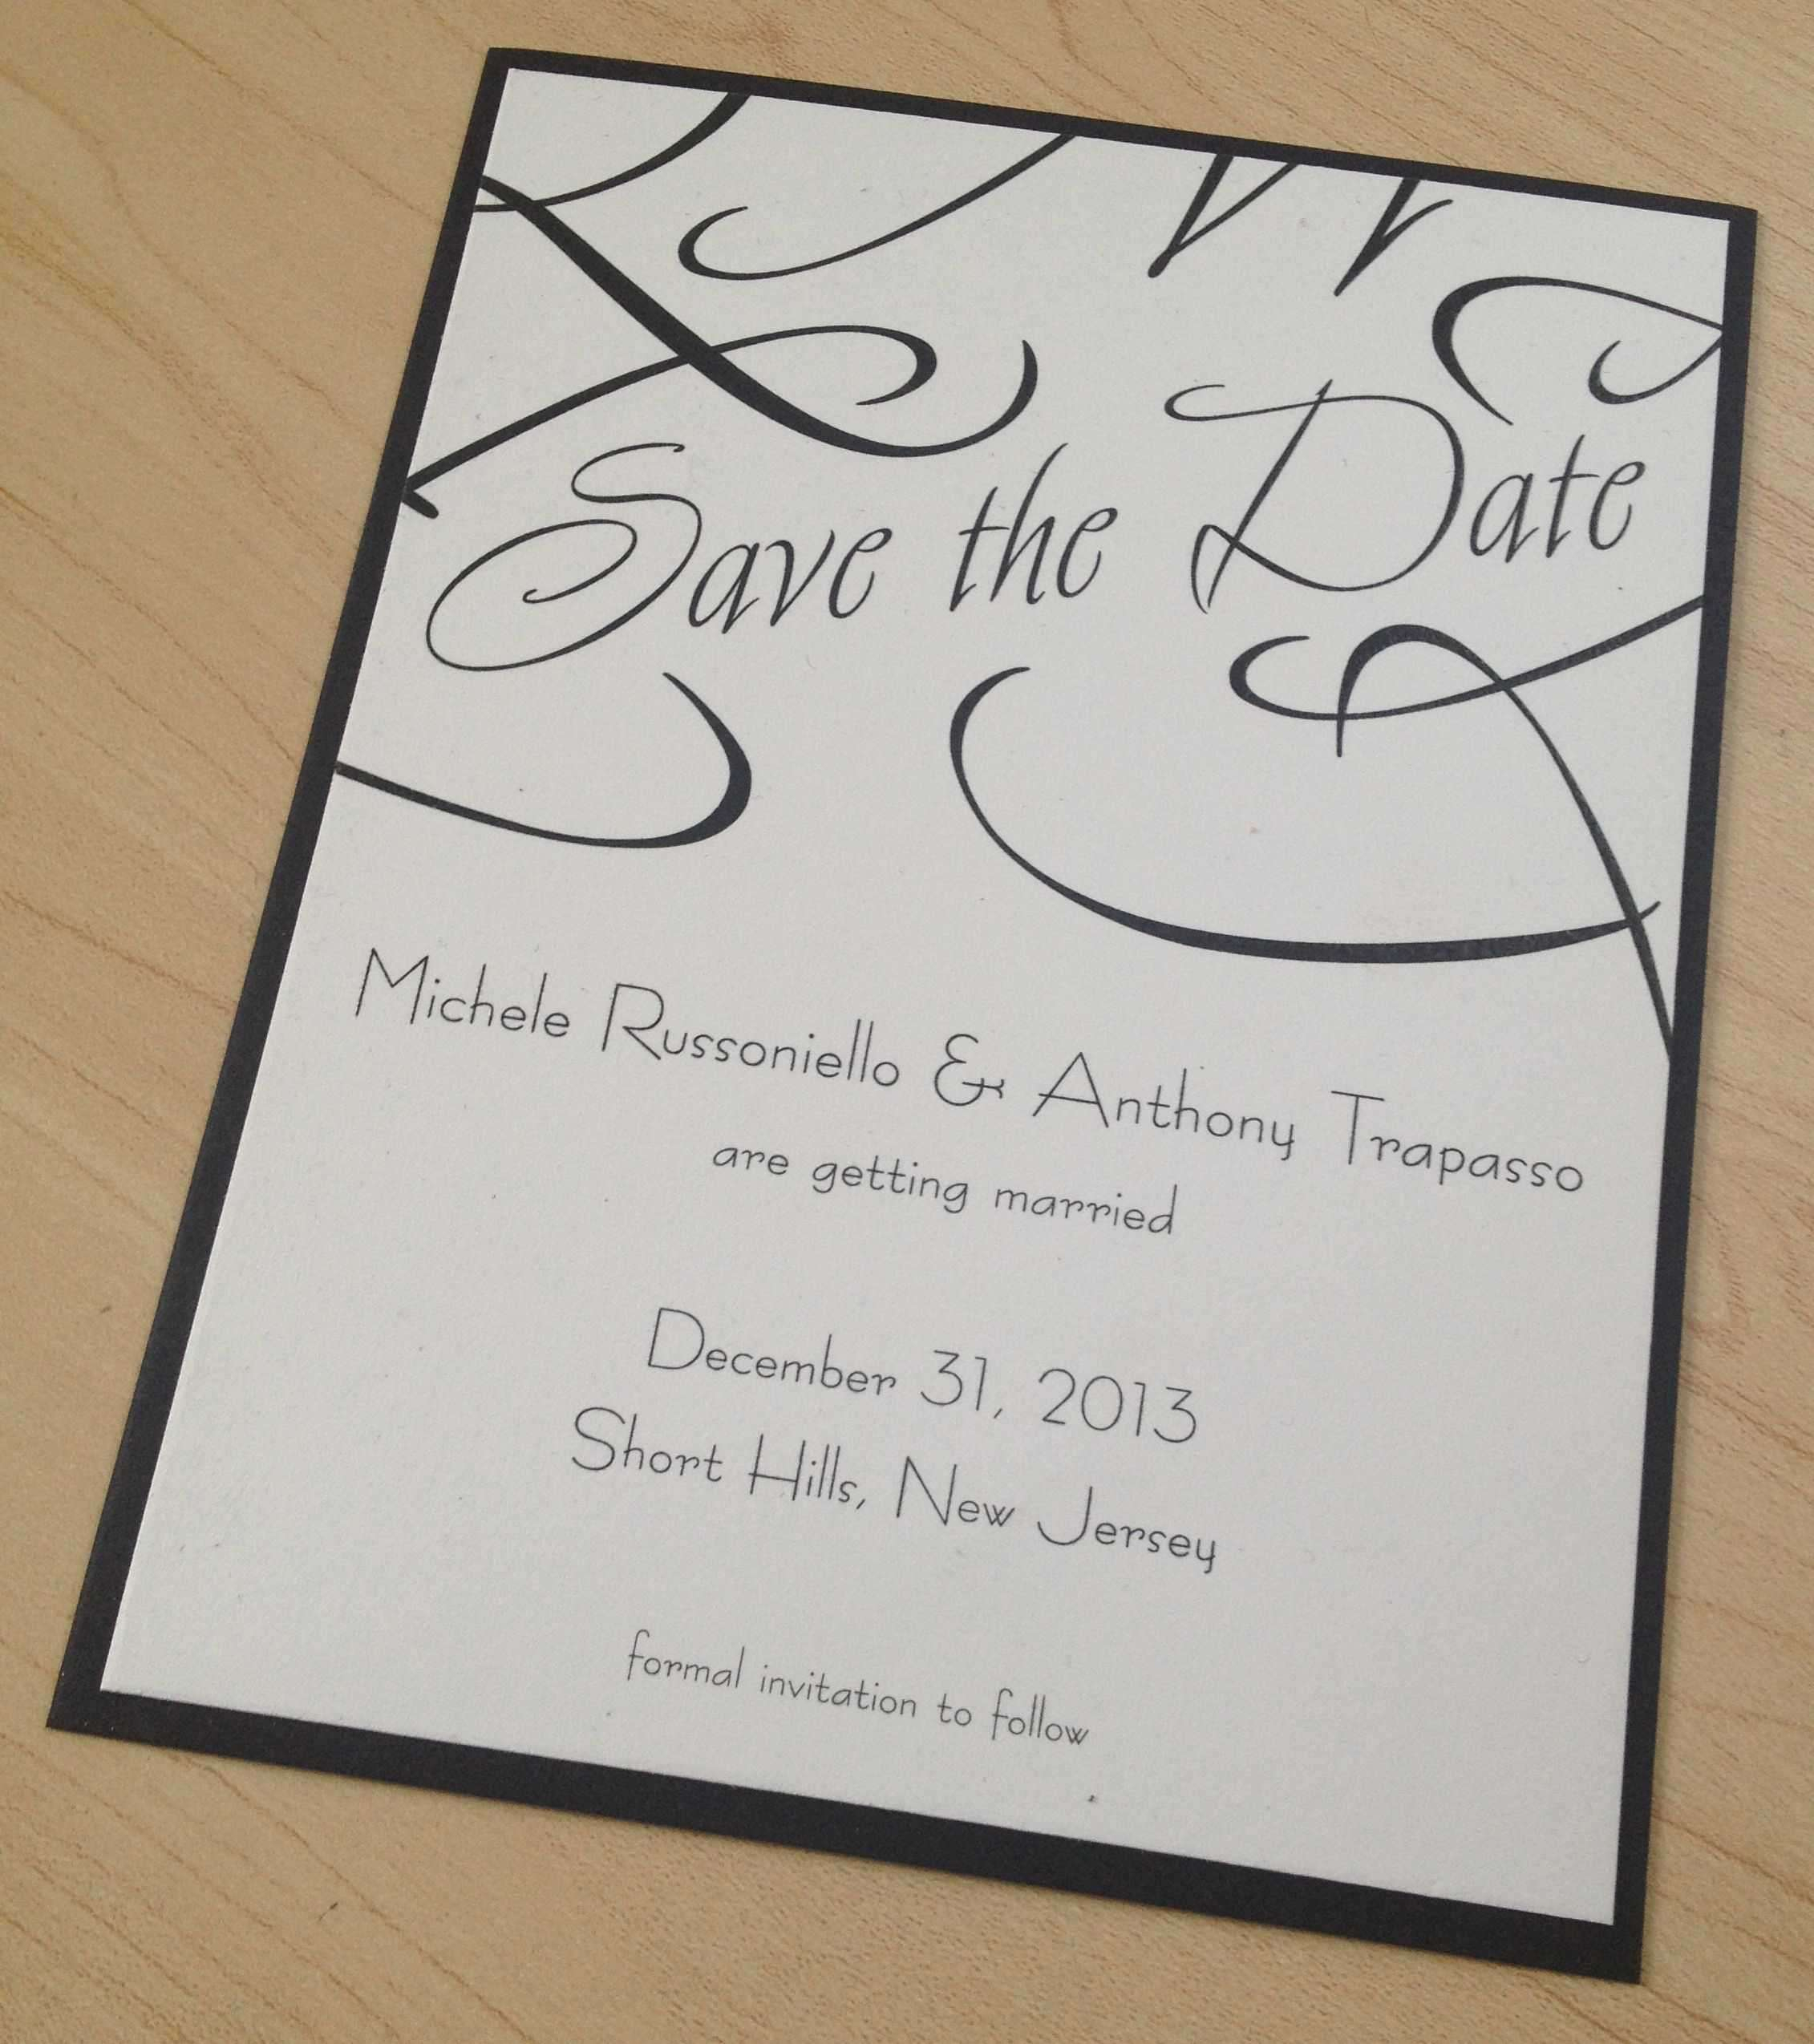 Save the Date
Michele Russoniello & Anthony Trapasso
are getting married
December 31, 2013
Short Hills, New Jersey
formal invitation to follow